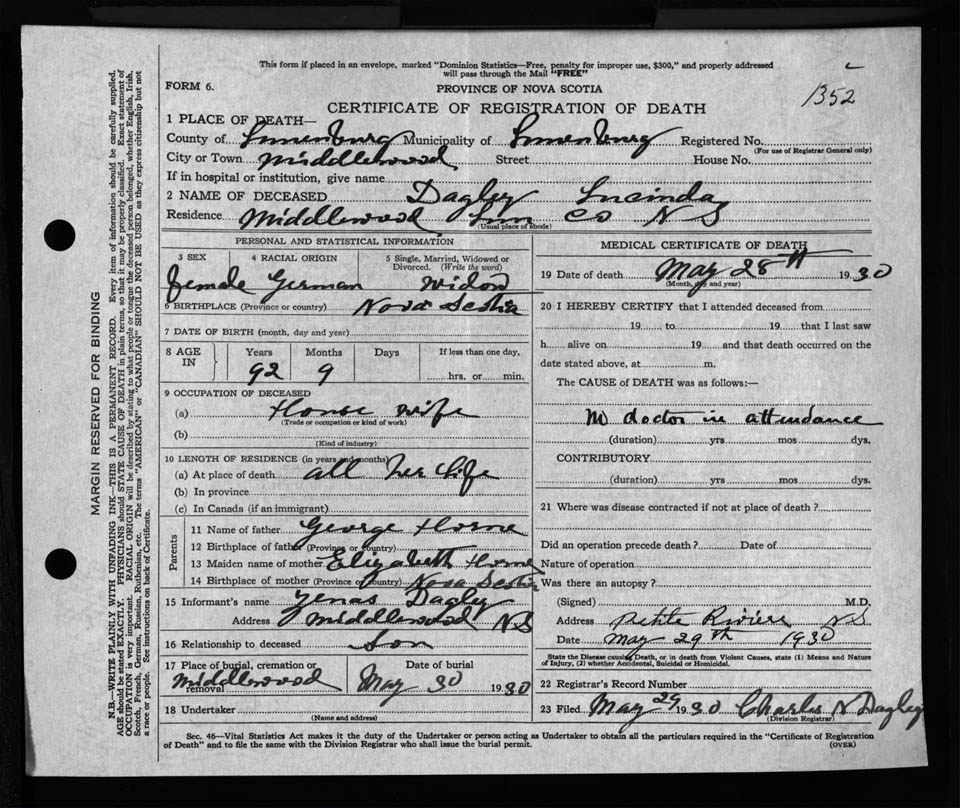 This form if placed in an envelope, marked "Dominion Statistics—Free, penalty for improper use, $300," and properly addressed
will pass through the Mail "FREE"
FORM 6.
PROVINCE OF NOVA SCOTIA
1352
CERTIFICATE OF REGISTRATION OF DEATH
1 PLACE OF DEATH—
County of Lunenburg Municipality of Lunenburg Registered No.
(For use of Registrar General only)
City or Town Middlewood Street House No.
If in hospital or institution, give name
2 NAME OF DECEASED Dagley Lucinda
Residence Middlewood Lun Co N S
(Usual place of abode)
PERSONAL AND STATISTICAL INFORMATION
3 SEX 4 RACIAL ORIGIN 5 Single, Married, Widowed or Divorced. (Write the word)
female German Widow
6 BIRTHPLACE (Province or country) Nova Scotia
7 DATE OF BIRTH (month, day and year)
8 AGE IN Years Months Days If less than one day,
92 9 hrs. or min.
9 OCCUPATION OF DECEASED
(a) House wife
(Trade or occupation or kind of work)
(b)
(Kind of industry)
10 LENGTH OF RESIDENCE (in years and months)
(a) At place of death all her life
(b) In province
(c) In Canada (if an immigrant)
Parents
11 Name of father George Horne
12 Birthplace of father (Province or country)
13 Maiden name of mother Elizabeth Horne
14 Birthplace of mother (Province or country) Nova Scotia
15 Informant's name Zenas Dagley
Address Middlewood N S
16 Relationship to deceased Son
17 Place of burial, cremation or removal Date of burial
Middlewood May 30 1930
18 Undertaker
(Name and address)
MEDICAL CERTIFICATE OF DEATH
19 Date of death May 28th 1930
(Month, day and year)
20 I HEREBY CERTIFY that I attended deceased from
19 to 19 that I last saw
h alive on 19 and that death occurred on the
date stated above, at m.
The CAUSE of DEATH was as follows:—
No doctor in attendance
(duration) yrs mos dys.
CONTRIBUTORY
(duration) yrs mos dys.
21 Where was disease contracted if not at place of death?
Did an operation precede death? Date of
Nature of operation
Was there an autopsy?
(Signed) M.D.
Address Petite Riviere N S
Date May 29th 1930
State the Disease causing Death, or in death from Violent Causes, state (1) Means and Nature
of Injury, (2) whether Accidental, Suicidal or Homicidal.
22 Registrar's Record Number
23 Filed May 29 1930 Charles N Dagley
(Division Registrar)
Sec. 46—Vital Statistics Act makes it the duty of the Undertaker or person acting as Undertaker to obtain all the particulars required in the "Certificate of Registration
of Death" and to file the same with the Division Registrar who shall issue the burial permit.
(OVER)
MARGIN RESERVED FOR BINDING
N.B.—WRITE PLAINLY WITH UNFADING INK—THIS IS A PERMANENT RECORD. Every item of information should be carefully supplied.
AGE should be stated EXACTLY. PHYSICIANS should STATE CAUSE OF DEATH in plain terms, so that it may be properly classified. Exact statement of
OCCUPATION is very important. RACIAL ORIGIN will be described by stating to what people or tongue the deceased person belonged, whether English, Irish,
Scotch, French, German, Russian, Ruthenian, etc. The terms "AMERICAN" or "CANADIAN" SHOULD NOT BE USED as they express citizenship but not
a race or people. See instructions on back of Certificate.